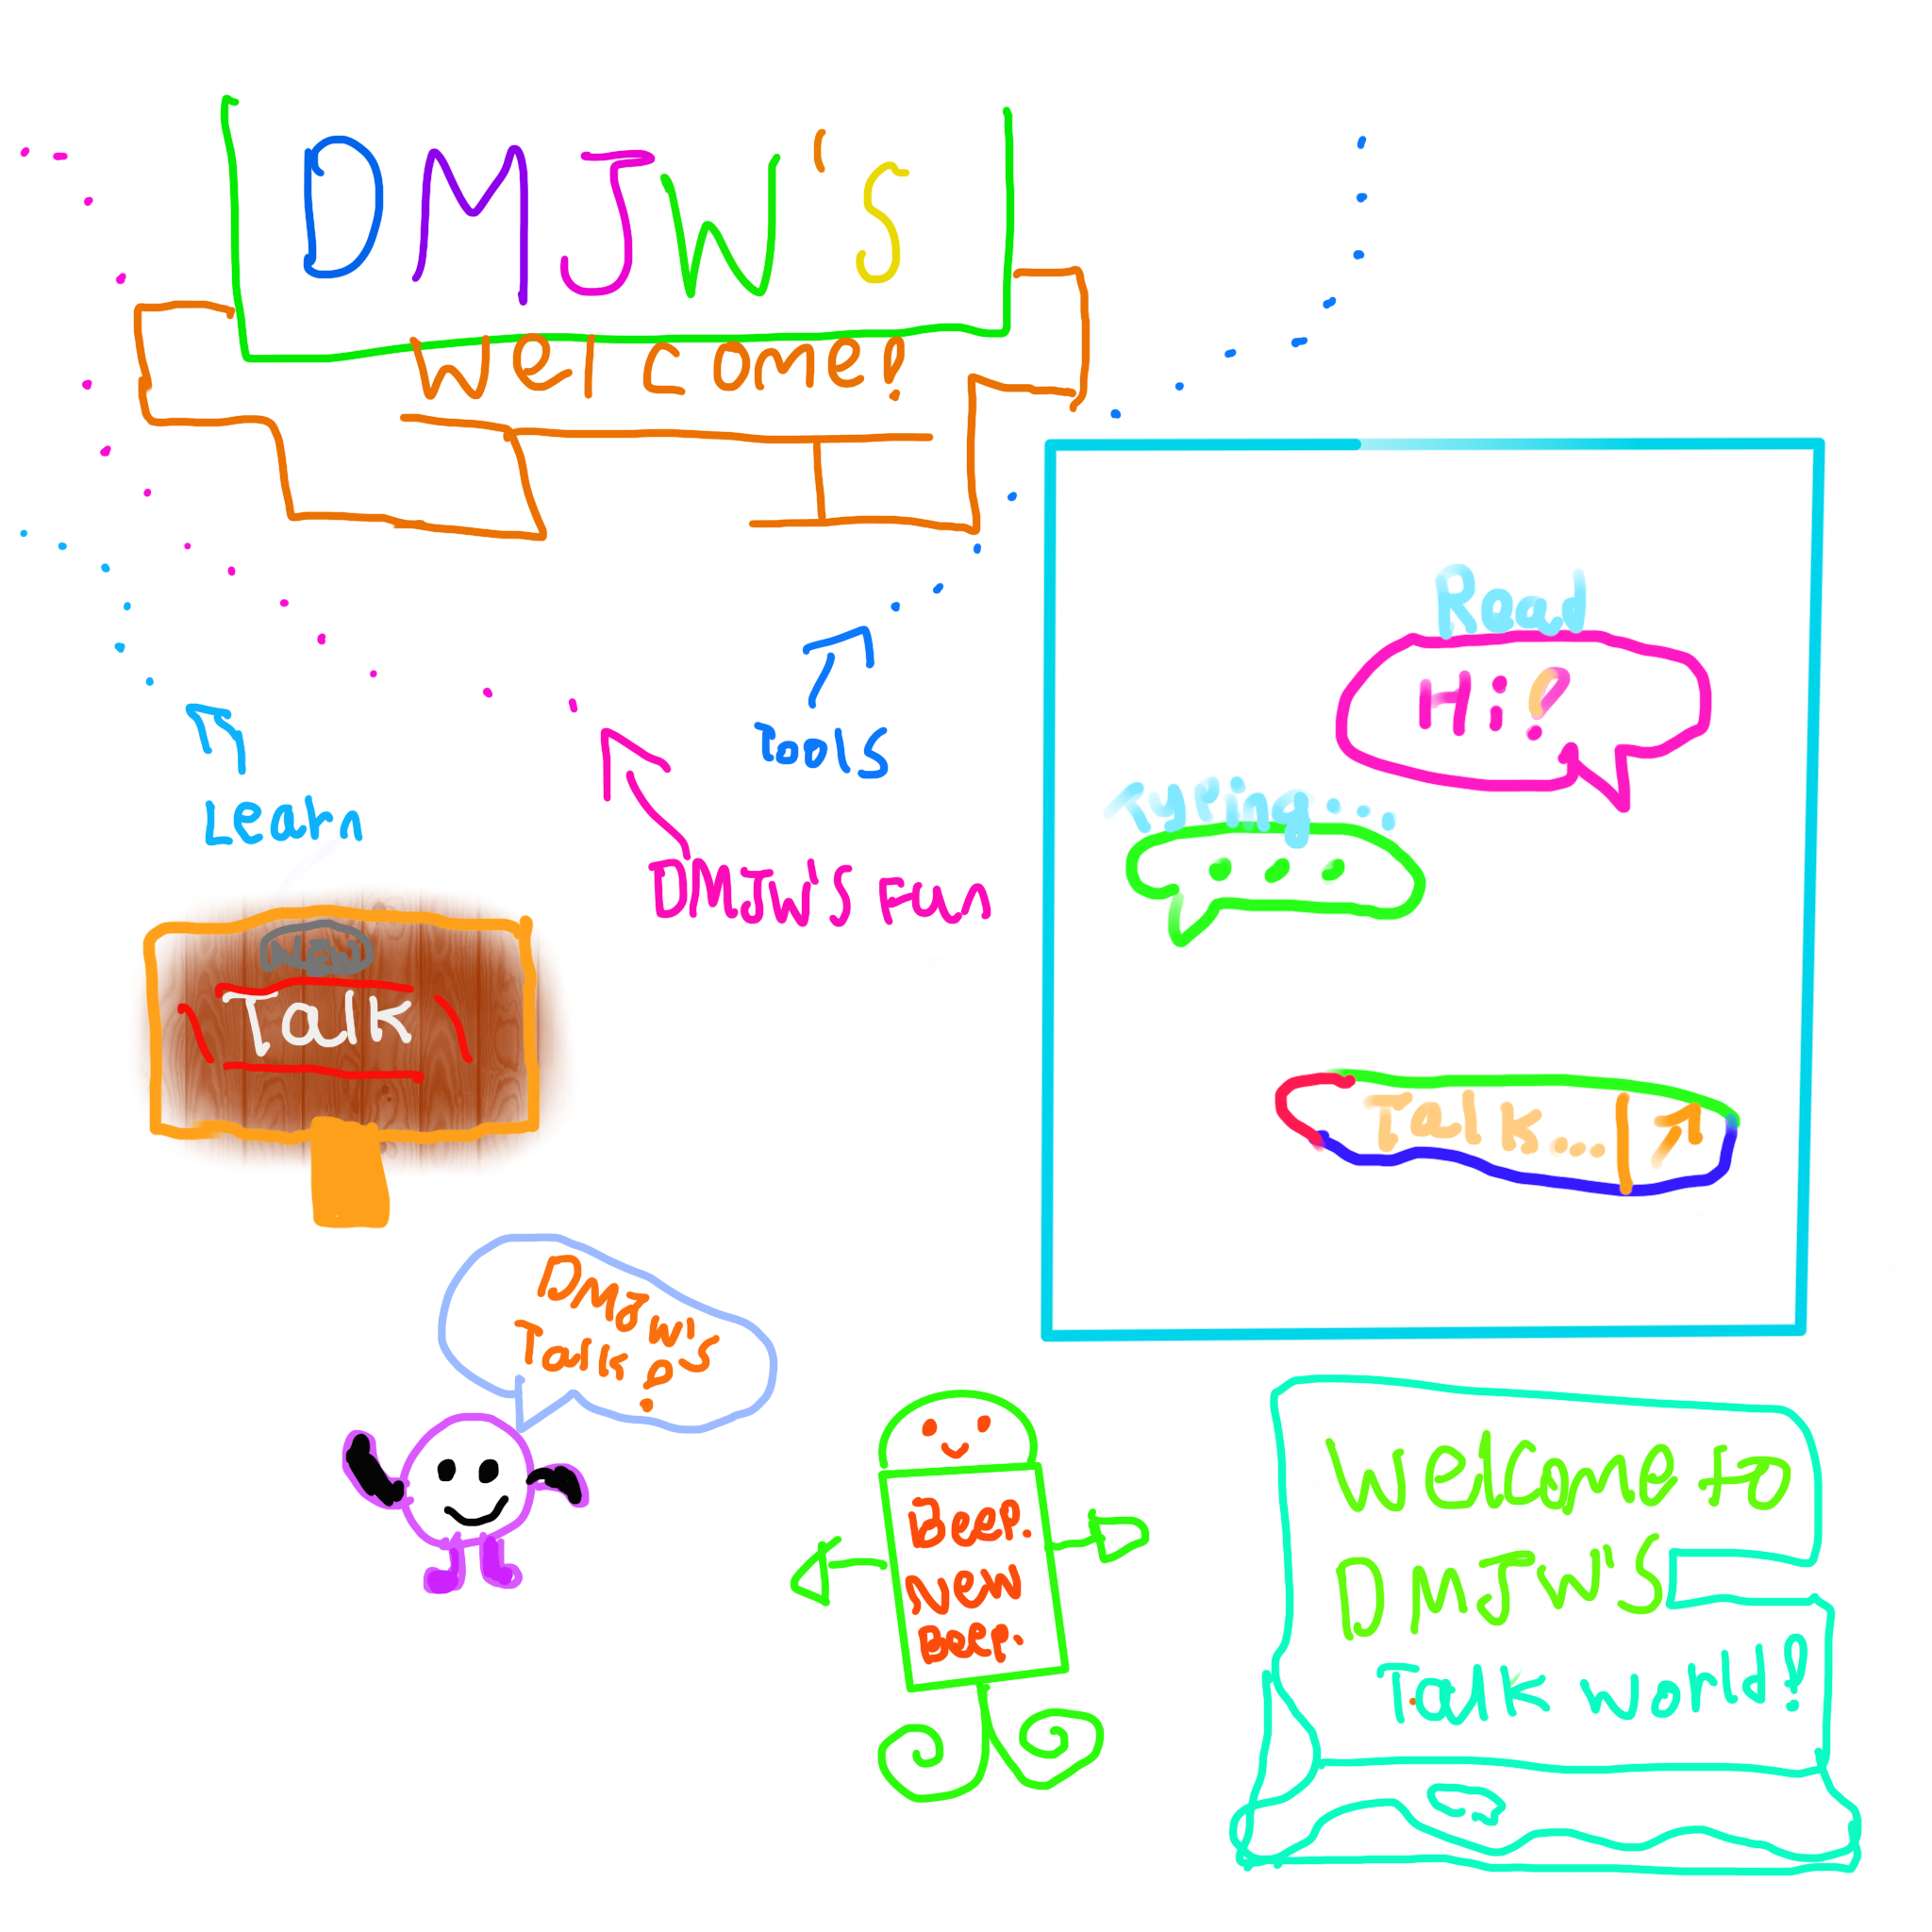 DMJW'S
Welcome!
Learn
DMJW'S Fun
Tools
Read
Hi!
Typing....
...
Talk...
New
Talk
DMJW'S
Talk?
Beep.
New
Beep.
Welcome to
DMJW'S
Talk world!